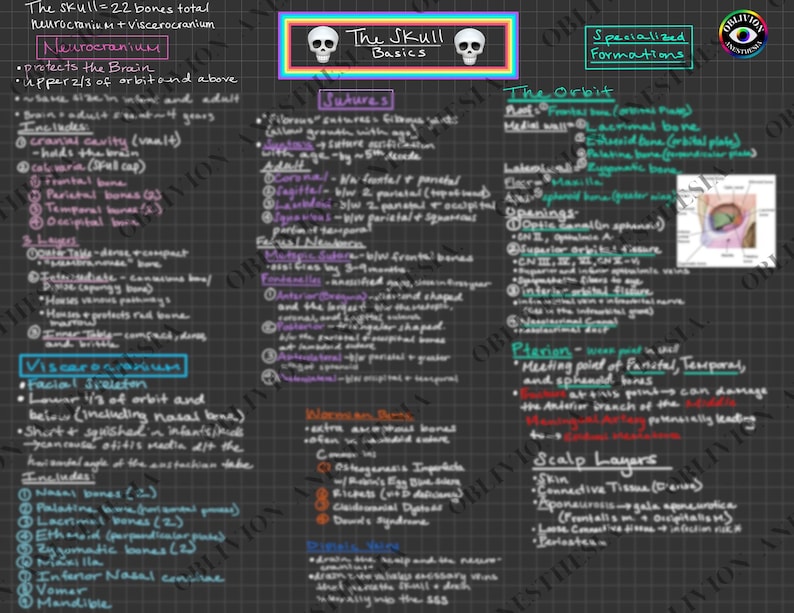 The skull = 22 bones total
neurocranium + viscerocranium
Neurocranium
• protects the Brain
• upper 2/3 of orbit and above
• ~ same size in infant and adult
• Brain = adult size at ~ 4 years
Includes:
① cranial cavity (vault)
- holds the brain
② calvaria (skull cap)
① Frontal bone
② Parietal bones (2)
③ Temporal bones (2)
④ Occipital bone
3 Layers
① Outer Table - dense + compact
② Intermediate - cancellous bone/
(spongy bone)
• Houses venous pathways
• Houses + protects red bone
marrow
③ Inner Table - compact, dense,
and brittle
Viscerocranium
• Facial Skeleton
• Lower 1/3 of orbit and
below (including nasal bone)
• Short + squished in infants/kids
→ can cause otitis media d/t the
horizontal angle of the eustachian tube
Includes:
① Nasal bones (2)
② Palatine bone (horizontal process)
③ Lacrimal bones (2)
④ Ethmoid (perpendicular plate)
⑤ Zygomatic bones (2)
⑥ Maxilla
⑦ Inferior Nasal conchae
⑧ Vomer
⑨ Mandible
The Skull
Basics
Sutures
• "fibrous" sutures = fibrous joints
(allow growth with age)
• suture ossification
with age - by ~ 5th decade
Adult
① Coronal - b/w frontal + parietal
② Sagittal - b/w 2 parietal (top of head)
③ Lambdoid - b/w 2 parietal + occipital
④ Squamous - b/w parietal + squamous
portion of temporal
Fetus/Newborn
Metopic Suture - b/w frontal bones
• ossifies by 3-9 months
Fontanelles
① Anterior (Bregma) - diamond shaped
and the largest b/w the metopic,
coronal, and sagittal sutures
② Posterior - triangular shaped
b/w the parietal + occipital bones
at lambdoid suture
b/w parietal + greater
wing of sphenoid
b/w occipital + temporal
Wormian Bones
• extra sutural bones
• often in lambdoid suture
Common in:
① Osteogenesis Imperfecta
w/ Robin's Egg Blue sclera
② Rickets (vit D deficiency)
③ Cleidocranial Dystosis
④ Down's Syndrome
Diploic Veins
• drain the scalp and the neuro-
cranium
Specialized
Formations
OBLIVION
ANESTHESIA
The Orbit
Roof: Frontal bone (orbital plate)
Medial wall: ① Lacrimal bone
② Ethmoid bone (orbital plate)
③ Palatine bone (perpendicular plate)
Lateral wall: Zygomatic bone
Floor: Maxilla
Apex: sphenoid bone (greater wing)
Openings-
① Optic canal (in sphenoid)
• CN II, Ophthalmic A.
② Superior orbital fissure
• superior and inferior ophthalmic veins
• Sympathetic fibers to eye
③ inferior orbital fissure
④ Nasolacrimal Canal
• nasolacrimal duct
Pterion - weak point of skull
• Meeting point of Parietal, Temporal,
and sphenoid bones
• Fracture at this point → can damage
the Anterior branch of the Middle
Meningeal Artery potentially leading
to → Epidural Hematoma
Scalp Layers
• Skin
• Connective Tissue (Dense)
• Aponeurosis → galea aponeurotica
(Frontalis m + Occipitalis M)
• Loose connective tissue → infection risk
• Periosteum
OBLIVION ANESTHESIA